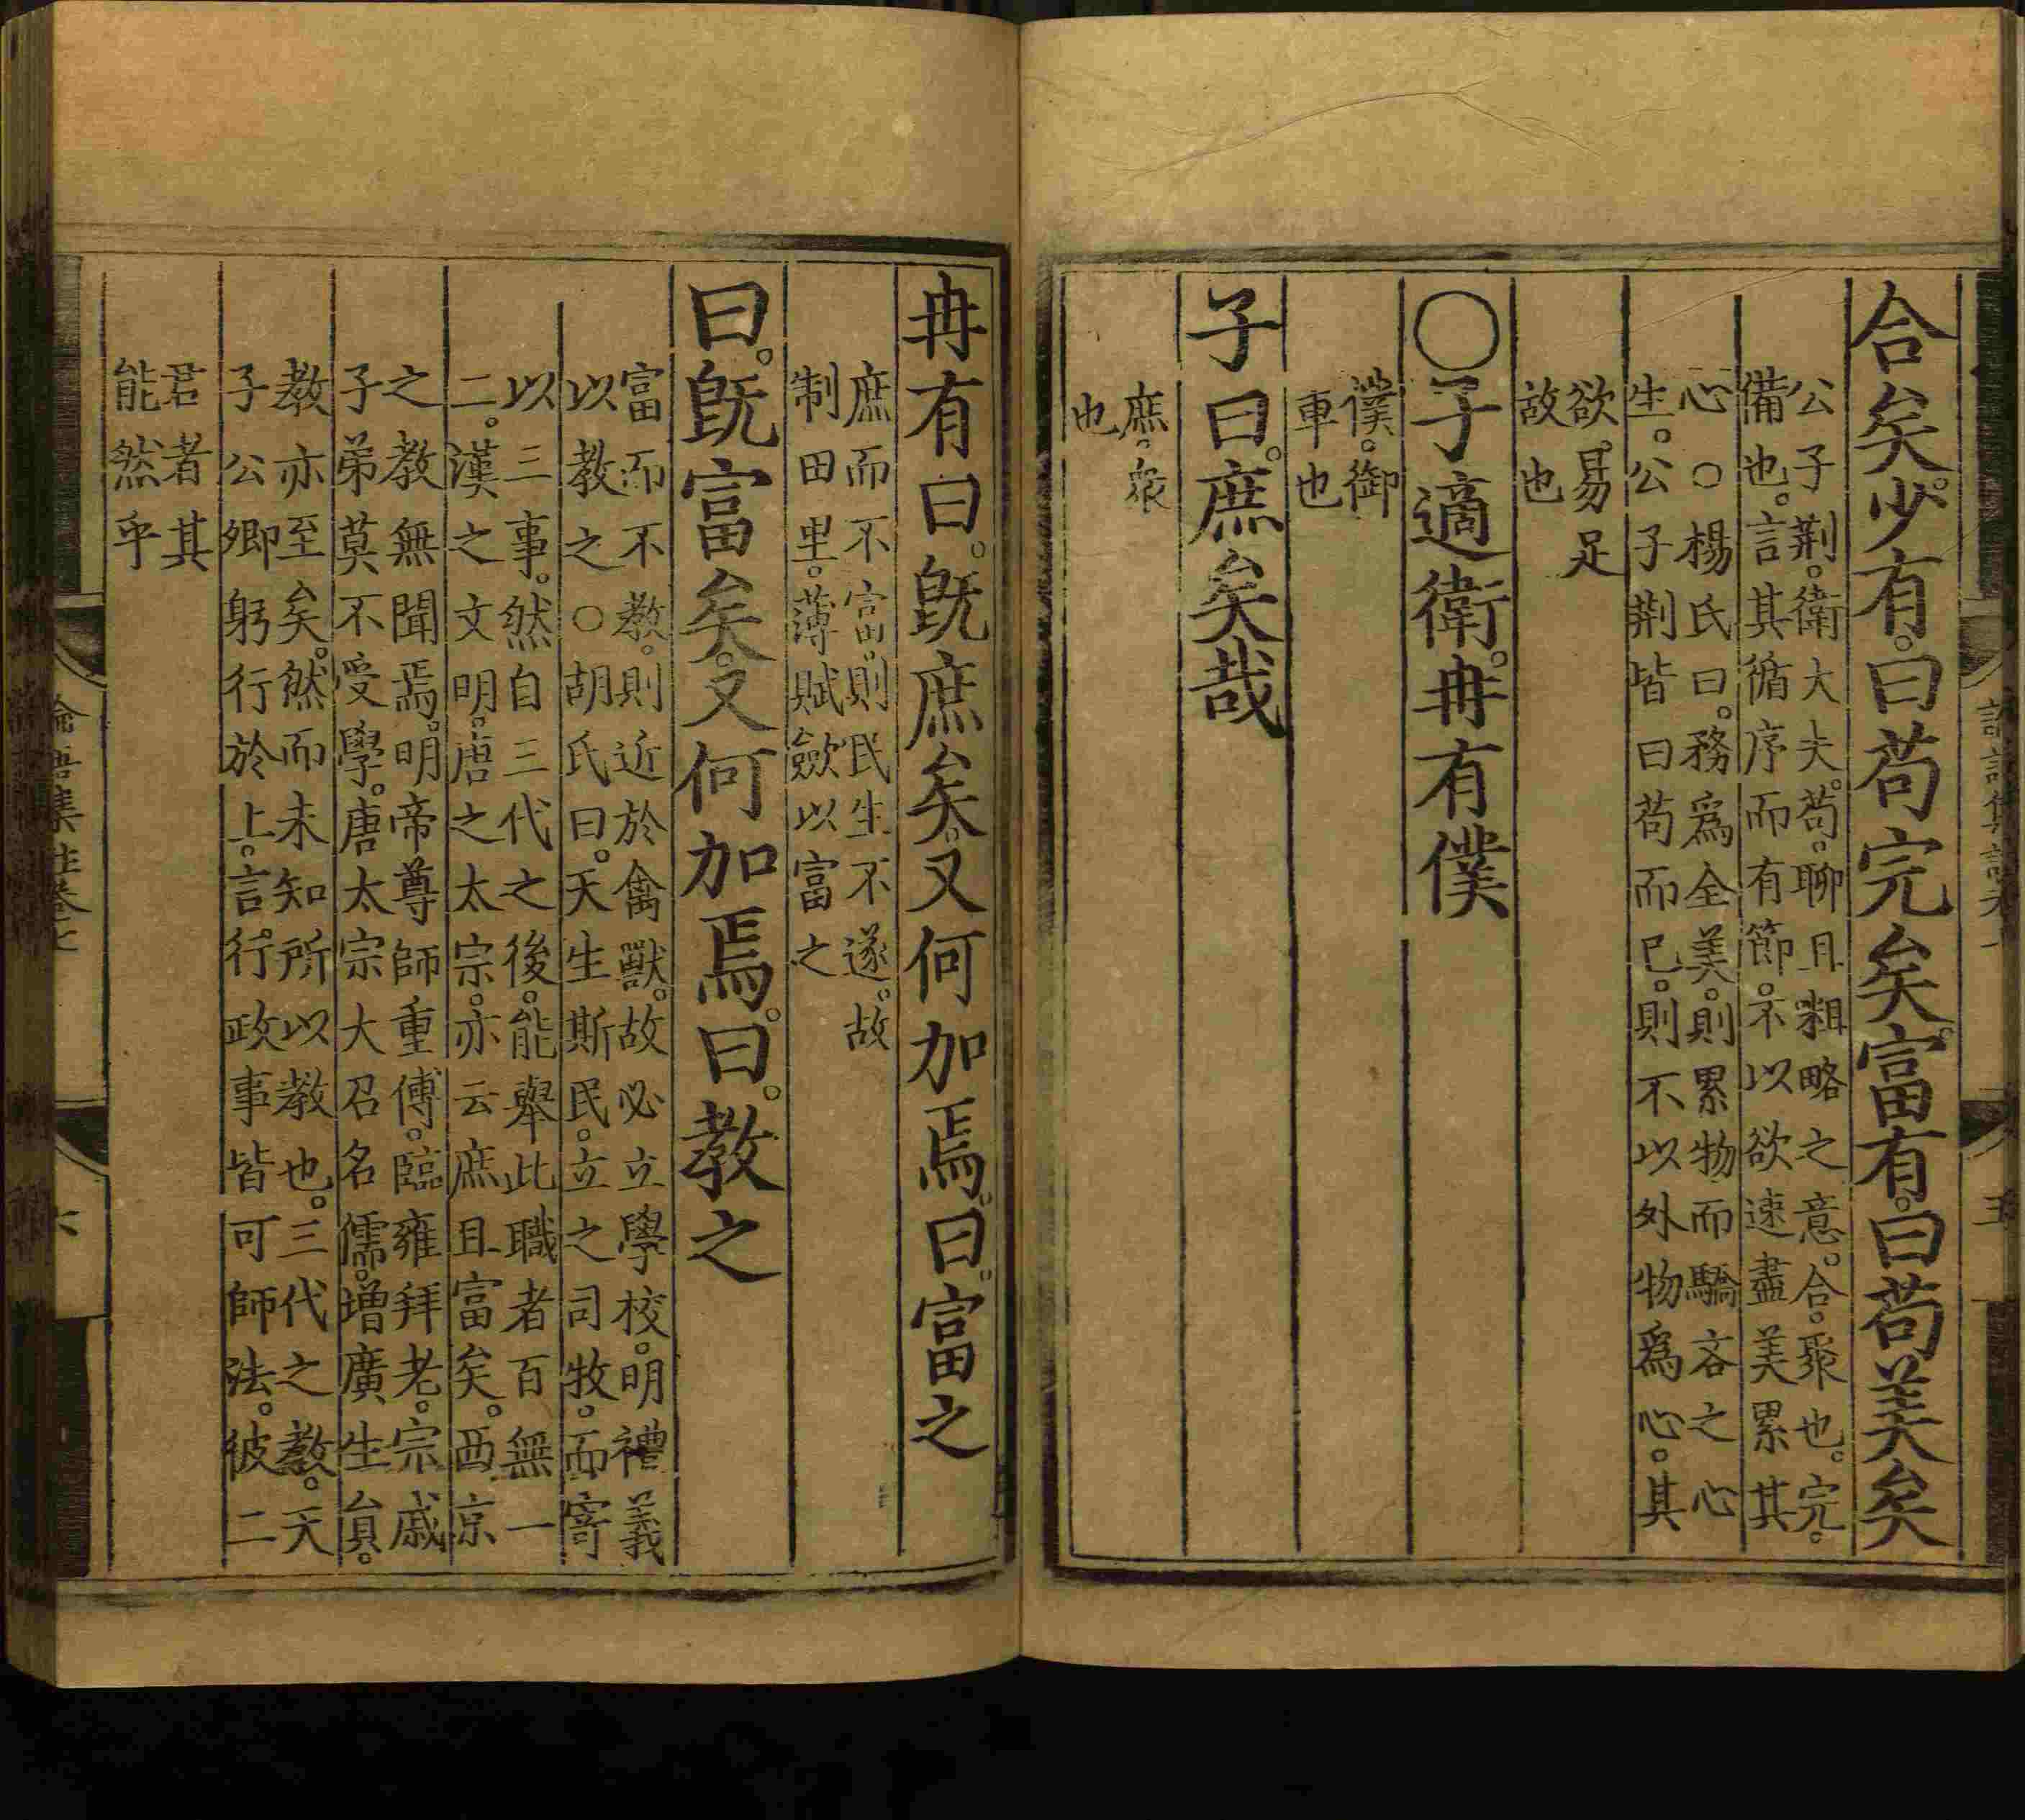 合矣。少有。曰苟完矣。富有。曰苟美矣
公子荆。衛大夫。苟。聊且粗略之意。合。聚也。完。
備也。言其循序而有節。不以欲速盡美累其
心○楊氏曰。務爲全美。則累物而驕吝之心
生。公子荆皆曰苟而已。則不以外物爲心。其
欲。易足
故也
○子適衛。冉有僕
僕。御
車也
子曰。庶矣哉
庶。衆
也
冉有曰。旣庶矣。又何加焉。曰。富之
庶而不富。則民生不遂。故
制田里。薄賦斂以富之
曰。旣富矣。又何加焉。曰。教之
富而不教。則近於禽獸。故必立學校。明禮義
以教之○胡氏曰。天生斯民。立之司牧。而寄
以三事。然自三代之後。能舉此職者百無一
二。漢之文明。唐之太宗。亦云庶且富矣。西京
之教無聞焉。明帝尊師重傅。臨雍拜老。宗戚
子弟莫不受學。唐太宗大召名儒。增廣生員。
教亦至矣。然而未知所以教也。三代之教。天
子公卿躬行於上。言行政事皆可師法。彼二
君者其
能然乎
論語集註卷七
六